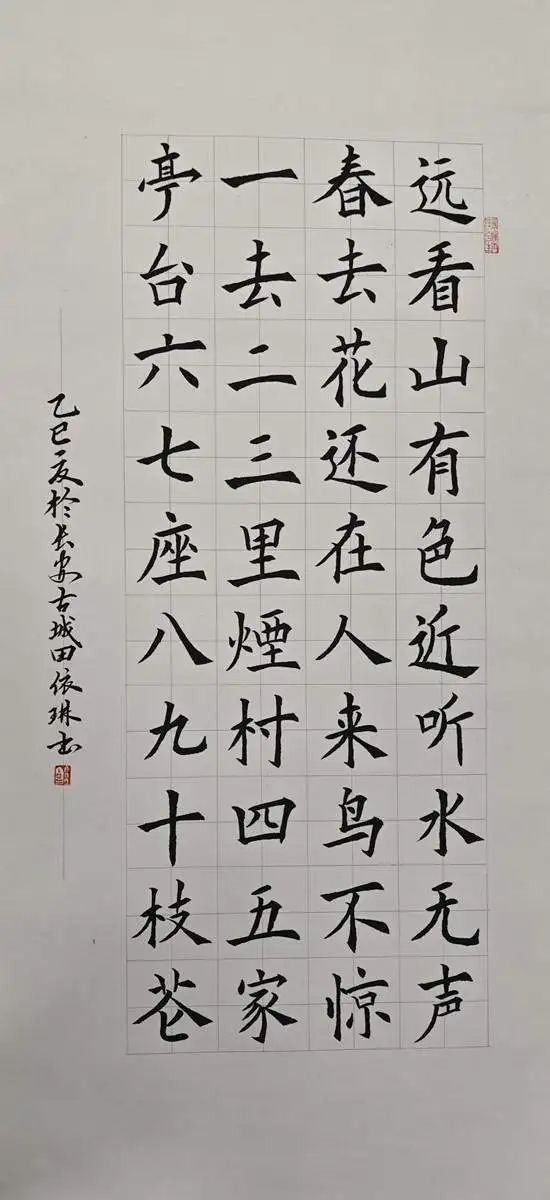 远看山有色近听水无声
春去花还在人来鸟不惊
一去二三里煙村四五家
亭台六七座八九十枝芲
乙巳夏於长安古城田依琳书